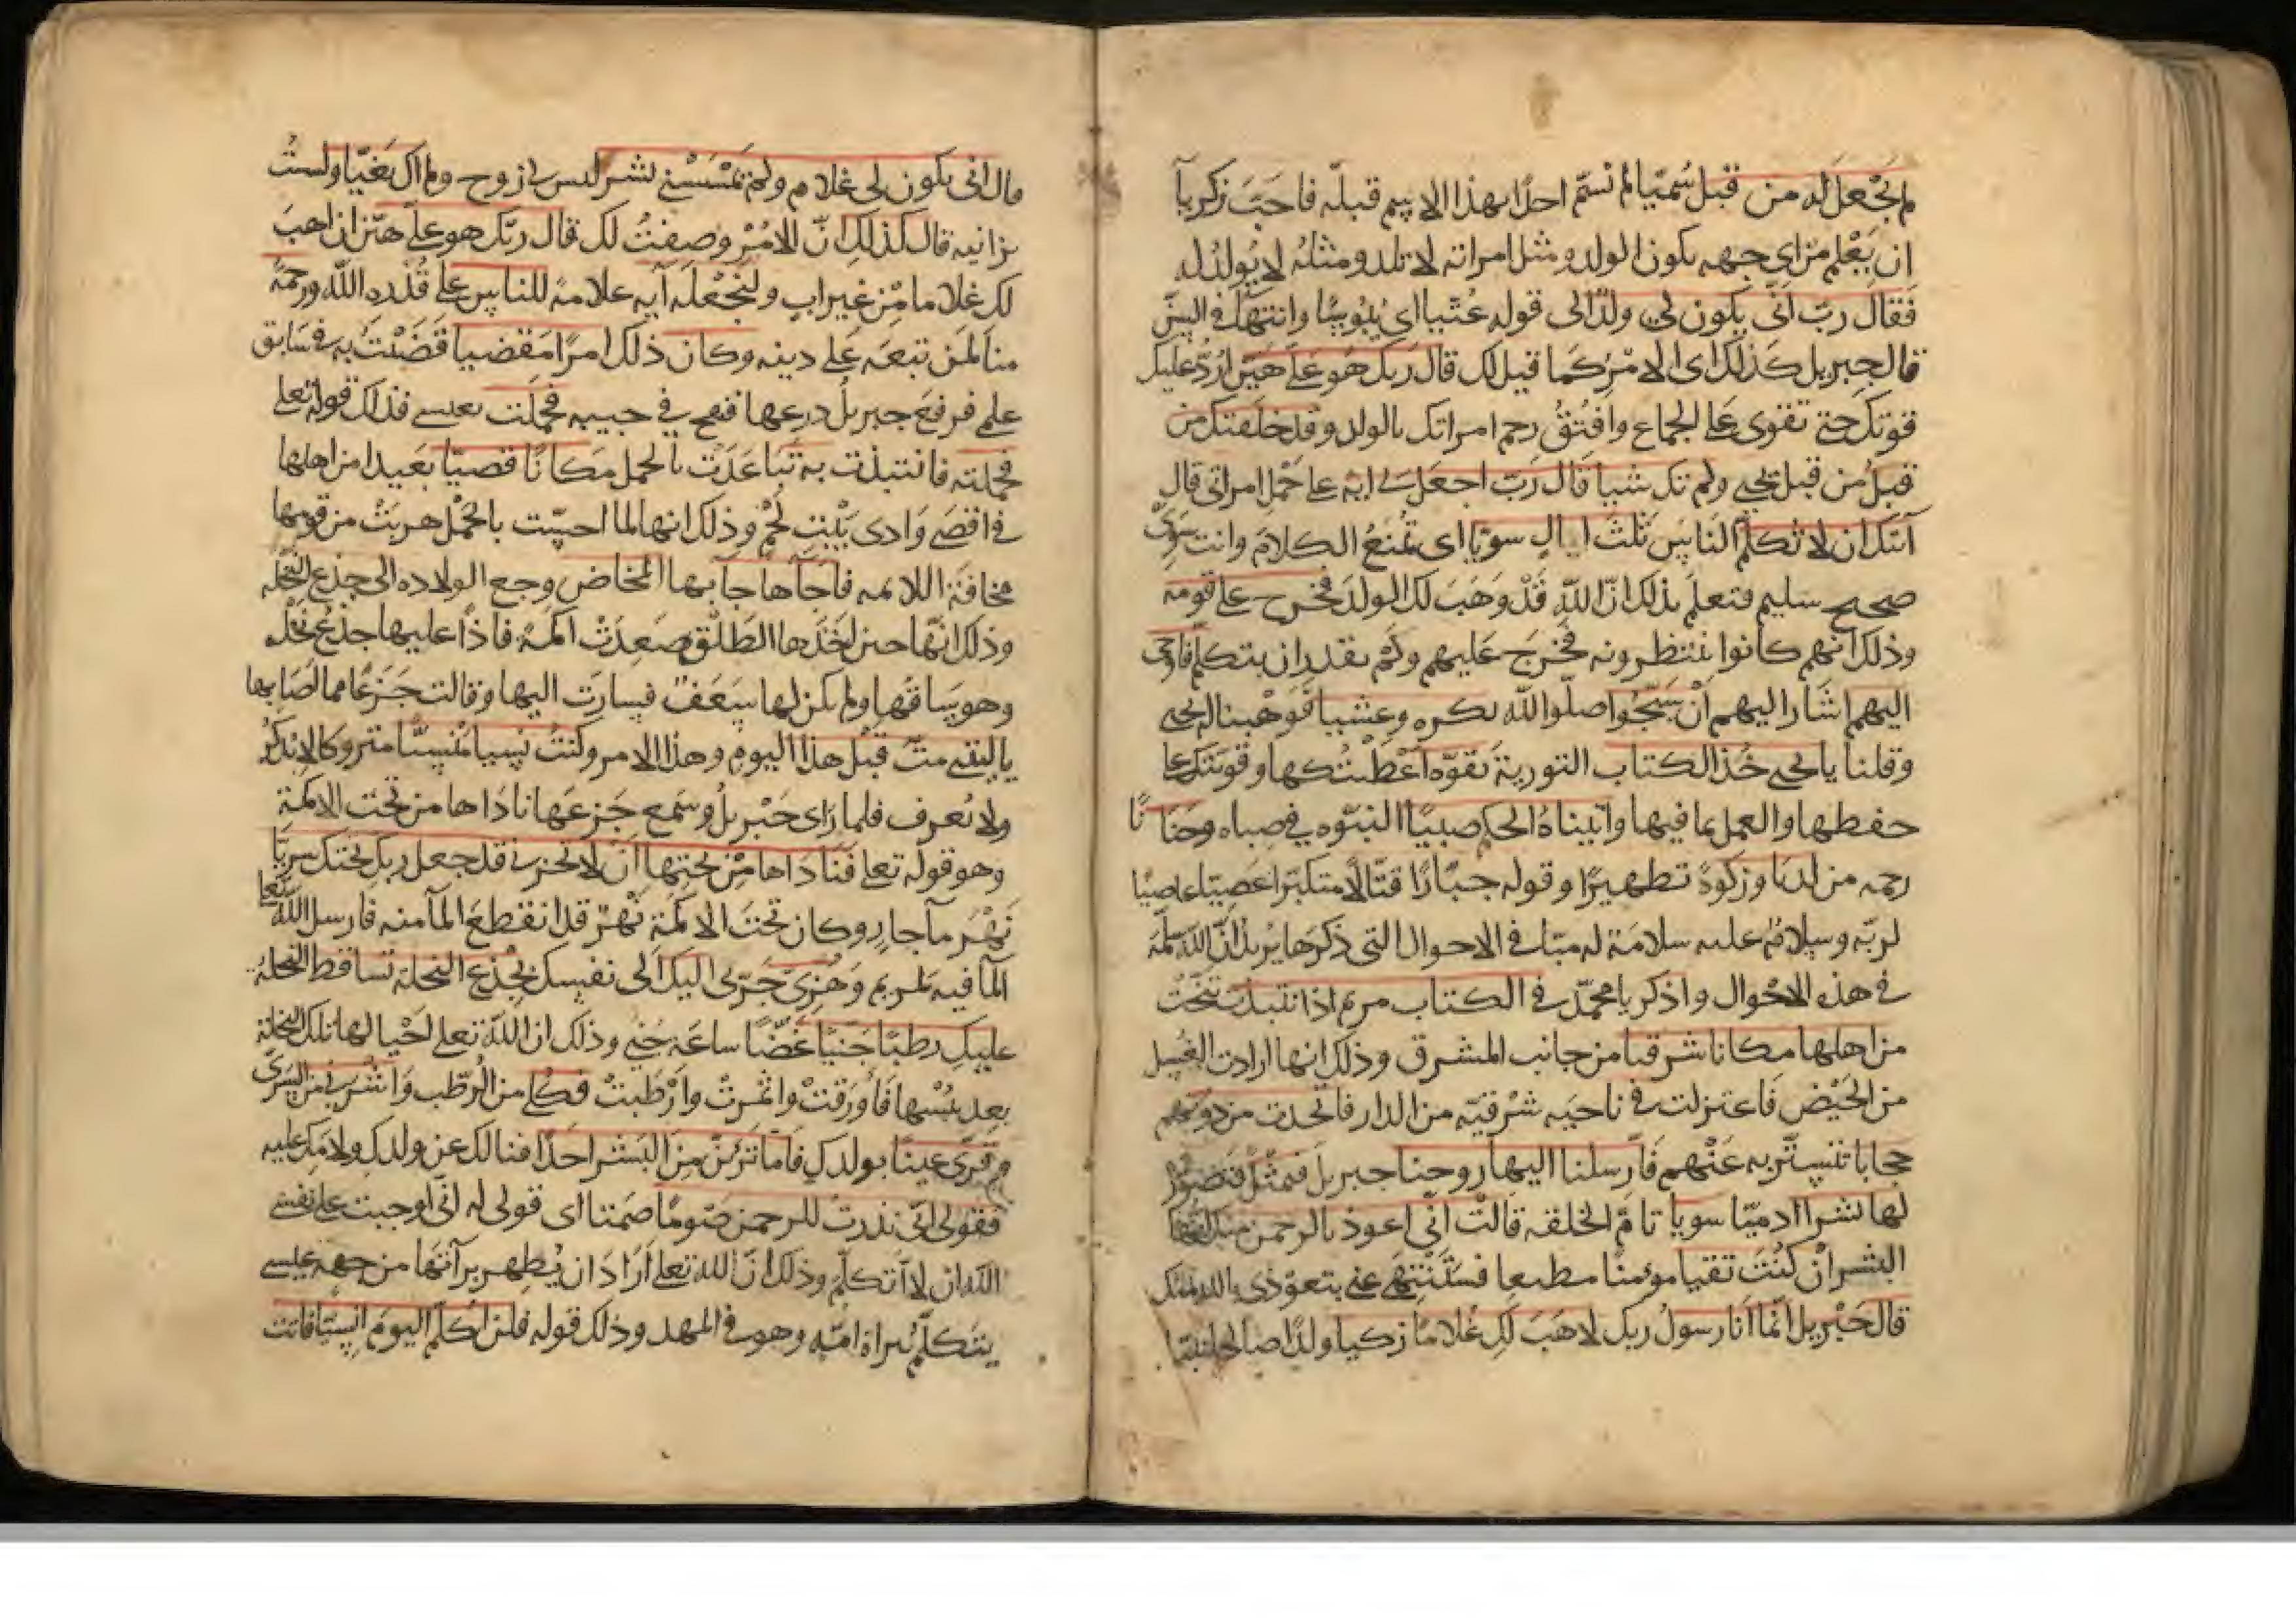 لم نجعل له من قبل سميا لم نسم احدا بهذا الاسم قبله فاحب زكريا
ان يعلم من اي جهه يكون الولد ومثل امراته لا تلد ومثله لا يولد له
فقال رب انى يكون لي ولد الى قوله عتيا اي يبوسا وانتهآ في السن
قال جبريل كذلك اى الامر كما قيل لك قال ربك هو على هين ارد عليك
قوتك حتى تقوى على الجماع وافتق رحم امراتك بالولد وقد خلقتك من
قبل من قبل يحيى ولم تك شيا قال رب اجعل لي ايه على حمل امراتى قال
آيتك ان لا تكلم الناس ثلث ليال سويا اى تمنع الكلام وانت سوى
صحيح سليم فتعلم بذلك ان الله قد وهب لك الولد فخرج على قومه
وذلك انهم كانوا ينتظرونه فخرج عليهم ولم يقدر ان يتكلم فاوحى
اليهم اشار اليهم ان سبحوا صلوا لله بكره وعشيا فوهبنا له يحيى
وقلنا يا يحيى خذ الكتاب التورية بقوه اعطيتكها وقويتك على
حفظها والعمل بما فيها وآتيناه الحكم صبيا النبوه في صباه وحنانا
رحمه من لدنا وزكوة تطهيرا وقوله جبارا قتالا متكبرا عصيا عاصيا
لربه وسلام عليه سلامة له منا في الاحوال التى ذكرها يريد ان الله سلمه
في هذه الاحوال واذكر يا محمد في الكتاب مريم اذ انتبذت تنحت
من اهلها مكانا شرقيا من جانب المشرق وذلك انها ارادت الغسل
من الحيض فاعتزلت في ناحيه شرقيه من الدار فاتخدت من دونهم
حجابا تتستر به عنهم فارسلنا اليها روحنا جبريل فتمثل فتصور
لها بشرا ادميا سويا تام الخلقه قالت انى اعوذ بالرحمن منك ايها
البشر ان كنت تقيا مومنا مطيعا فستنتهى عني بتعوذى بالله منك
قال جبريل انما انا رسول ربك لاهب لك غلاما زكيا ولدا صالحا نقيا
قال انى يكون لى غلام ولم يمسسني بشر ليس لي زوج ولم اك بغيا ولست
بزانيه قال كذلك ان الامر وصفت لك قال ربك هو على هين ان اهب
لك غلاما من غير اب ولنجعله آيه علامة للناس على قدره الله ورحمة
منا لمن تبعه على دينه وكان ذلك امرا مقضيا قضيت به في سابق
علمي فرفع جبريل درعها فنفخ في جيبه فحملت بعيسى فذلك قوله تعلى
فحملته فانتبذت به تباعدت بالحمل مكانا قصيا بعيدا من اهلها
في اقصى وادى بيت لحم وذلك انها لما احست بالحمل هربت من قومها
مخافة اللائمه فاجآها جآ بها المخاض وجع الولاده الى جذع النخله
وذلك انها حين اخذها الطلق صعدت اكمة فاذا عليها جذع نخله
وهو ساقها ولم يكن لها سعف فسارت اليها وقالت جزعا مما اصابها
يا ليتني مت قبل هذا اليوم وهذا الامر وكنت نسيا منسيا متروكا لا يذكر
ولا يعرف فلما راى جبريل وسمع جزعها ناداها من تحت الاكمة
وهو قوله تعلى فناداها من تحتها ان لا تحزني قد جعل ربك تحتك سريا
نهر مآ جار وكان تحت الاكمة نهر قد انقطع المآ منه فارسل الله تعا
المآ فيه لمريم وهزى جرى اليك الى نفسك بجذع النخلة تساقط النخلة
عليك رطبا جنيا غضا ساعه جني وذلك ان الله تعلى احيا لها تلك النخلة
بعد يبسها فاورقت واثمرت وارطبت فكلي من الرطب واشربي من السرى
وقرى عينا بولدك فاما ترين من البشر احدا فسالك عن ولدك ولامك عليه
فقولى انى نذرت للرحمن صوما صمتا اى قولى له انى اوجبت على نفسى
لله ان لا اتكلم وذلك ان الله تعلى اراد ان يظهر برآتها من جهه عيسى
يتكلم ببراة امه وهو في المهد وذلك قوله فلن اكلم اليوم انسيا فاتت